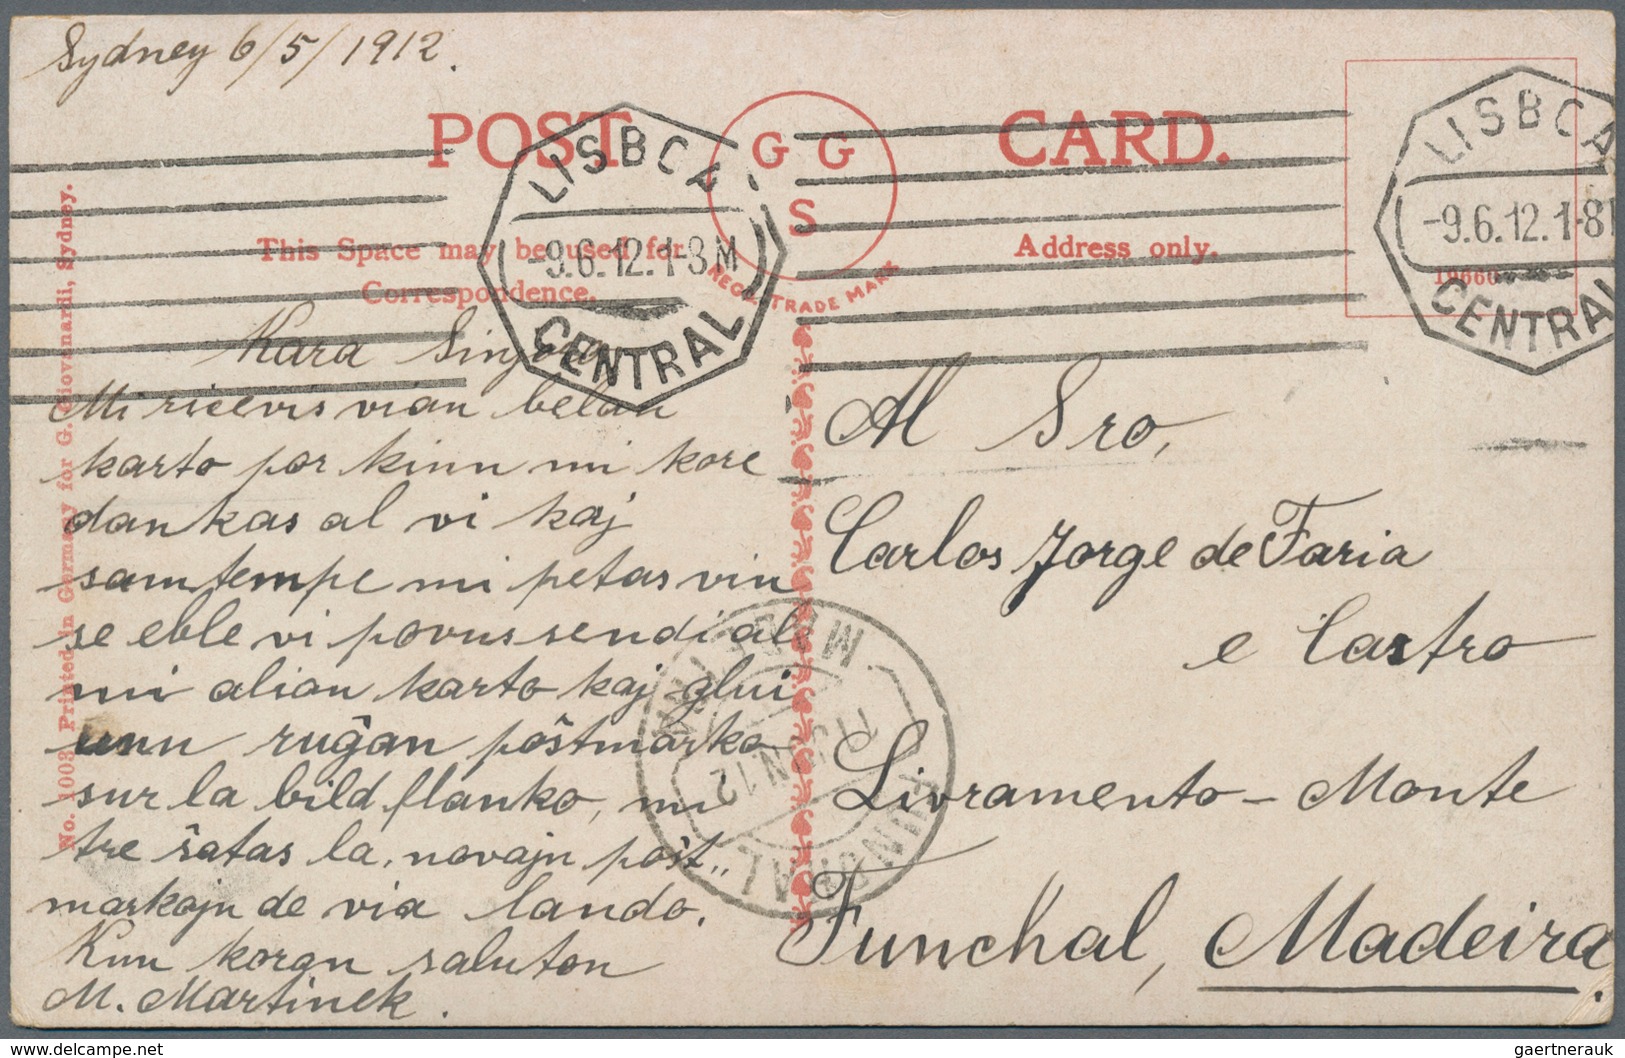 Sydney 6/5/1912.
POST CARD.
G G
S
REGD. TRADE MARK
This Space may be used for
Correspondence.
Address only.
LISBOA
-9.6.12.1-8M
CENTRAL
LISBOA
-9.6.12.1-8
CENTRAL
Kara Sinjoro
Mi ricevis vian belan
karto por kiun mi kore
dankas al vi kaj
samtempe mi petas vin
se eble vi povus sendi al
mi alian karto kaj glui
unu ruĝan poŝtmarko
sur la bildflanko, mi
tre ŝatas la, novajn poŝt„
markojn de via lando.
Kun koran saluton
M. Martinek.
Al Sro,
Carlos Jorge de Faria
e Castro
Livramento - Monte
Funchal, Madeira.
FUNCHAL
MADEIRA
No. 1003. Printed in Germany for G. Giovanardi, Sydney.
gaertnerauk
delcampe.net